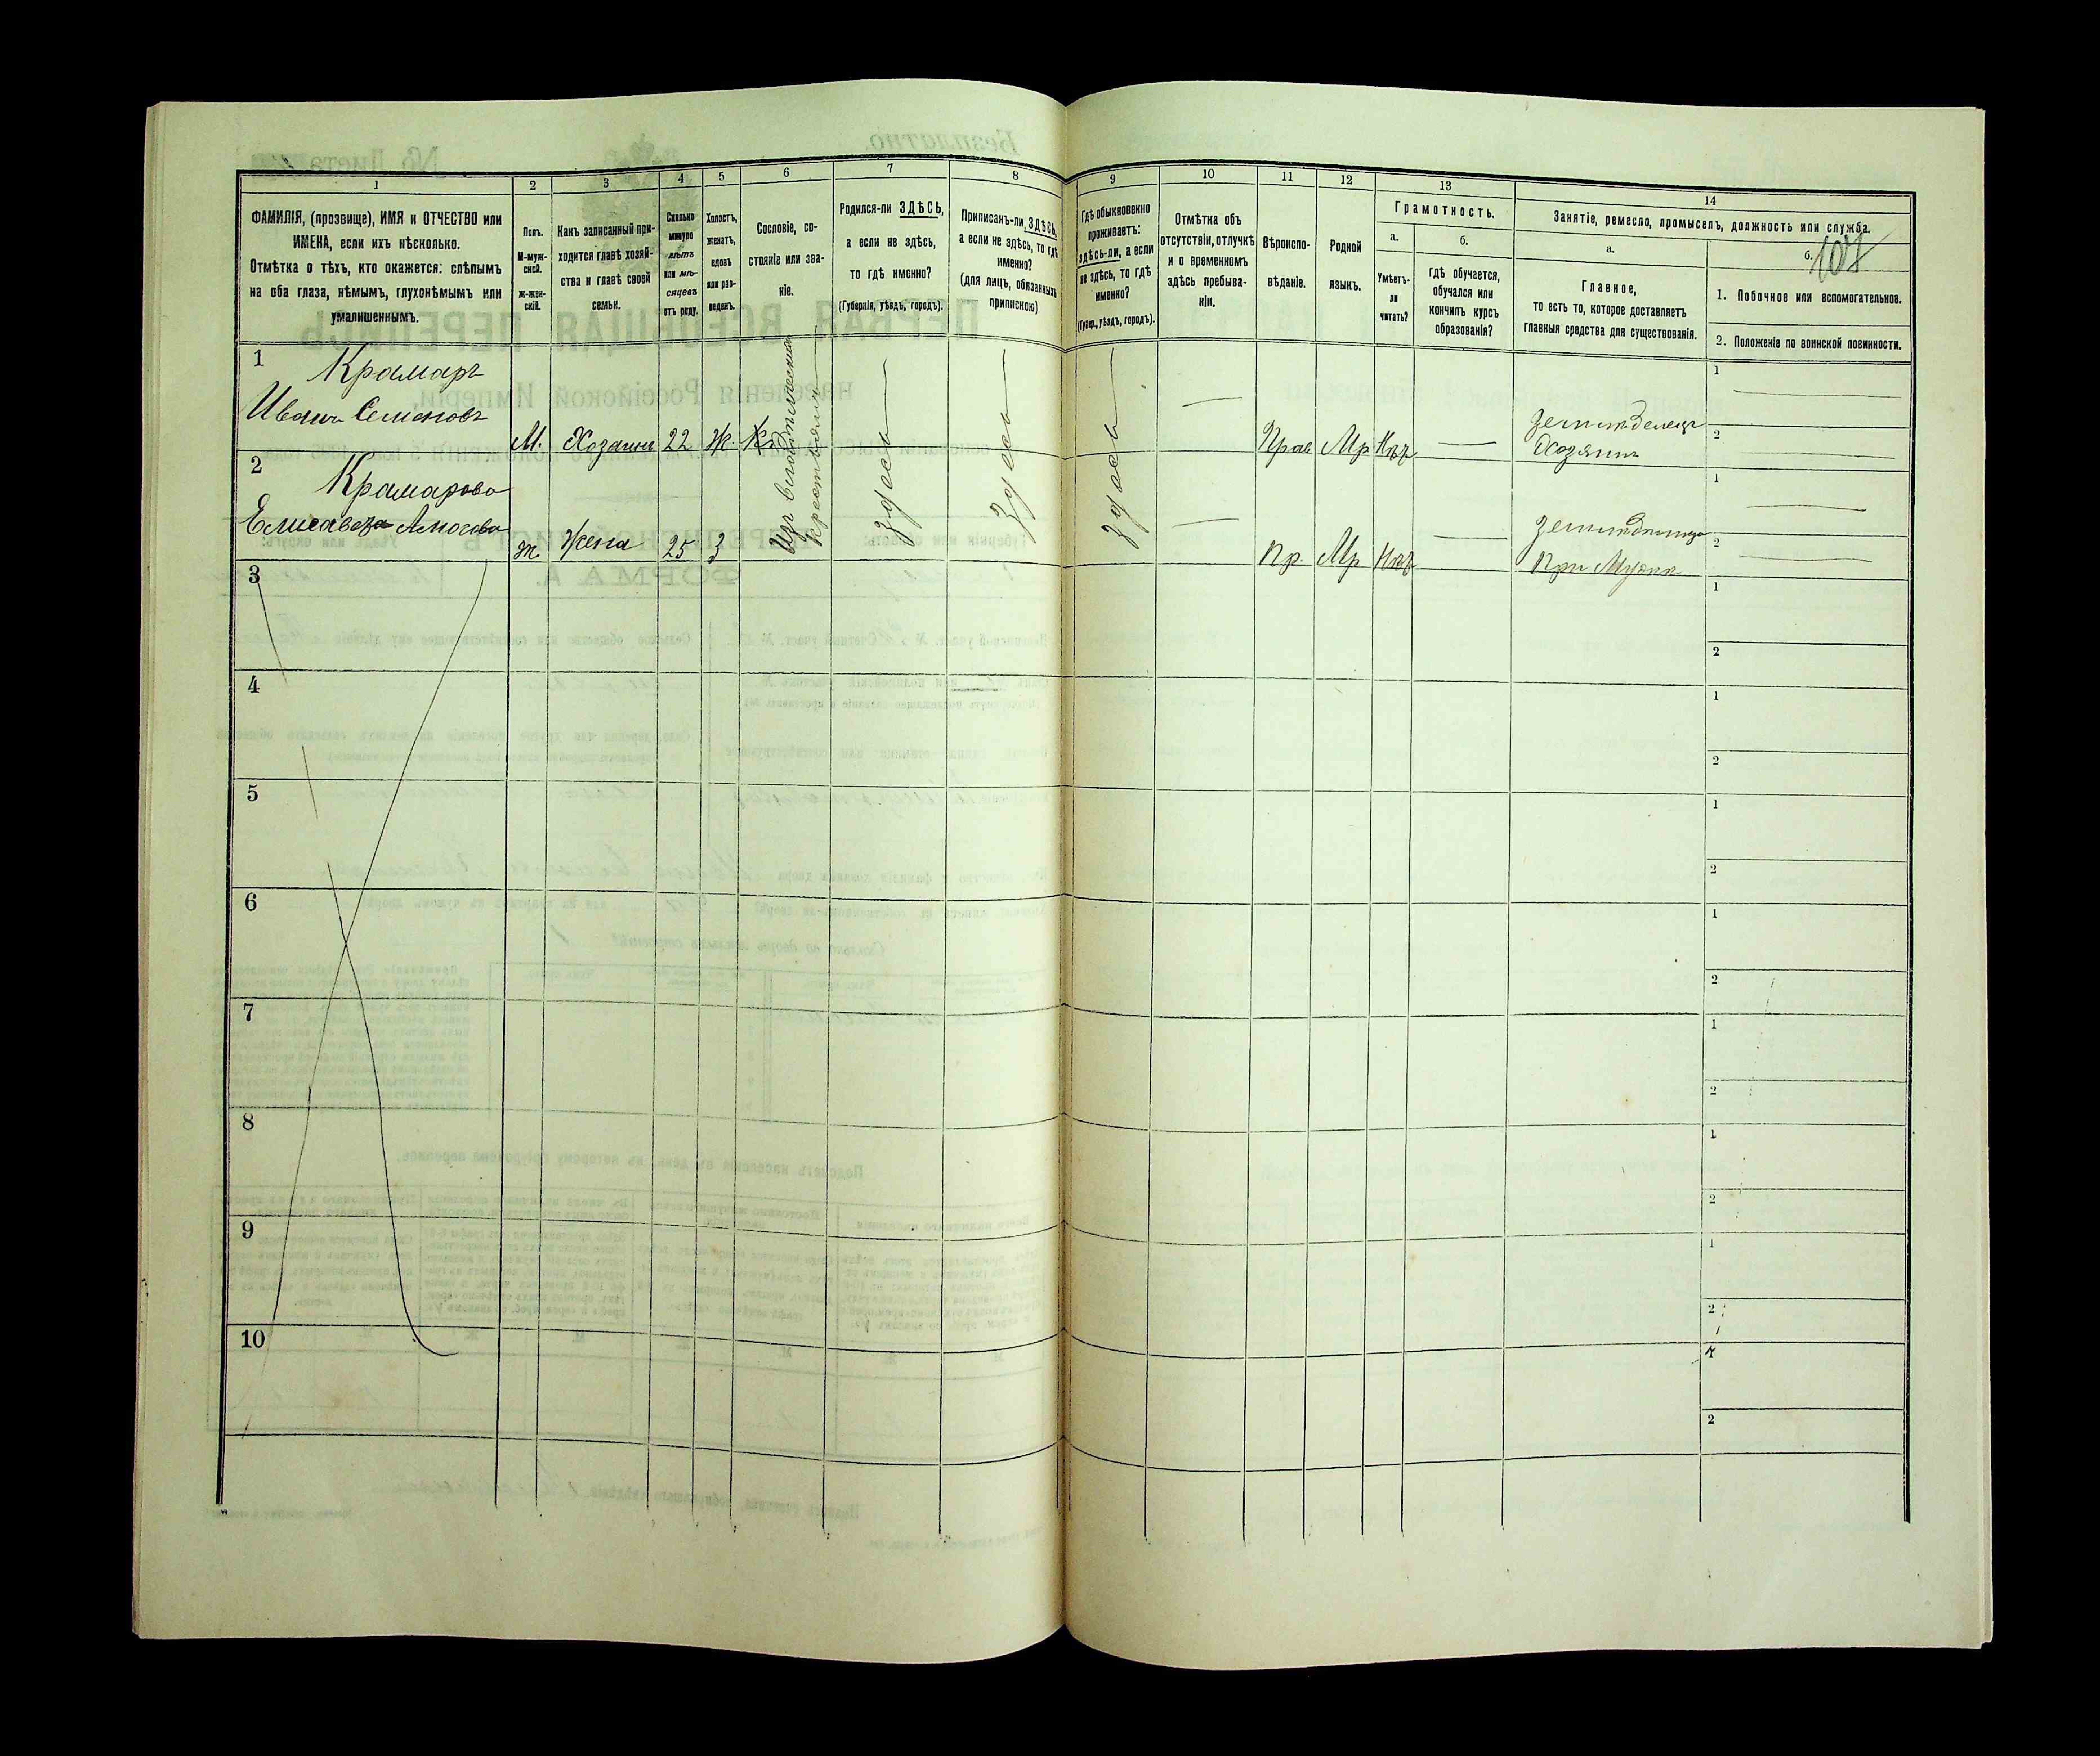 1
ФАМИЛІЯ, (прозвище), ИМЯ и ОТЧЕСТВО или
ИМЕНА, если ихъ нѣсколько.
Отмѣтка о тѣхъ, кто окажется: слѣпымъ
на оба глаза, нѣмымъ, глухонѣмымъ или
умалишеннымъ.
2
Полъ.
М-муж-
ской.
Ж-жен-
скій.
3
Какъ записанный при-
ходится главѣ хозяй-
ства и главѣ своей
семьи.
4
Сколько
минуло
лѣтъ
или мѣ-
сяцевъ
отъ роду.
5
Холостъ,
женатъ,
вдовъ
или раз-
веденъ.
6
Сословіе, со-
стояніе или зва-
ніе.
7
Родился-ли ЗДѢСЬ,
а если не здѣсь,
то гдѣ именно?
(Губернія, уѣздъ, городъ).
8
Приписанъ-ли ЗДѢСЬ,
а если не здѣсь, то гдѣ
именно?
(для лицъ, обязанныхъ
припискою)
9
Гдѣ обыкновенно
проживаетъ:
здѣсь-ли, а если
не здѣсь, то гдѣ
именно?
(Губер., уѣздъ, городъ).
10
Отмѣтка объ
отсутствіи, отлучкѣ
и о временномъ
здѣсь пребыва-
ніи.
11
Вѣроиспо-
вѣданіе.
12
Родной
языкъ.
13
Грамотность.
а.
Умѣетъ-
ли
читать?
б.
гдѣ обучается,
обучался или
кончилъ курсъ
образованія?
14
Занятіе, ремесло, промыселъ, должность или служба.
а.
Главное,
то есть то, которое доставляетъ
главныя средства для существованія.
б.
107
1. Побочное или вспомогательное.
2. Положеніе по воинской повинности.
1
Крамаръ
Иванъ Семеновъ
М.
Хозяинъ
22
Ж.
Изъ
Крестьянъ
здесь
здесь
здесь
Прав
Мр
Нѣтъ
Хозяинъ
1
2
2
Крамарова
Елисавета
ж.
Жена
25
З
Пр.
Мр
Нѣтъ
При Мужѣ
1
2
3
1
2
4
1
2
5
1
2
6
1
2
7
1
2
8
1
2
9
1
2
10
1
2